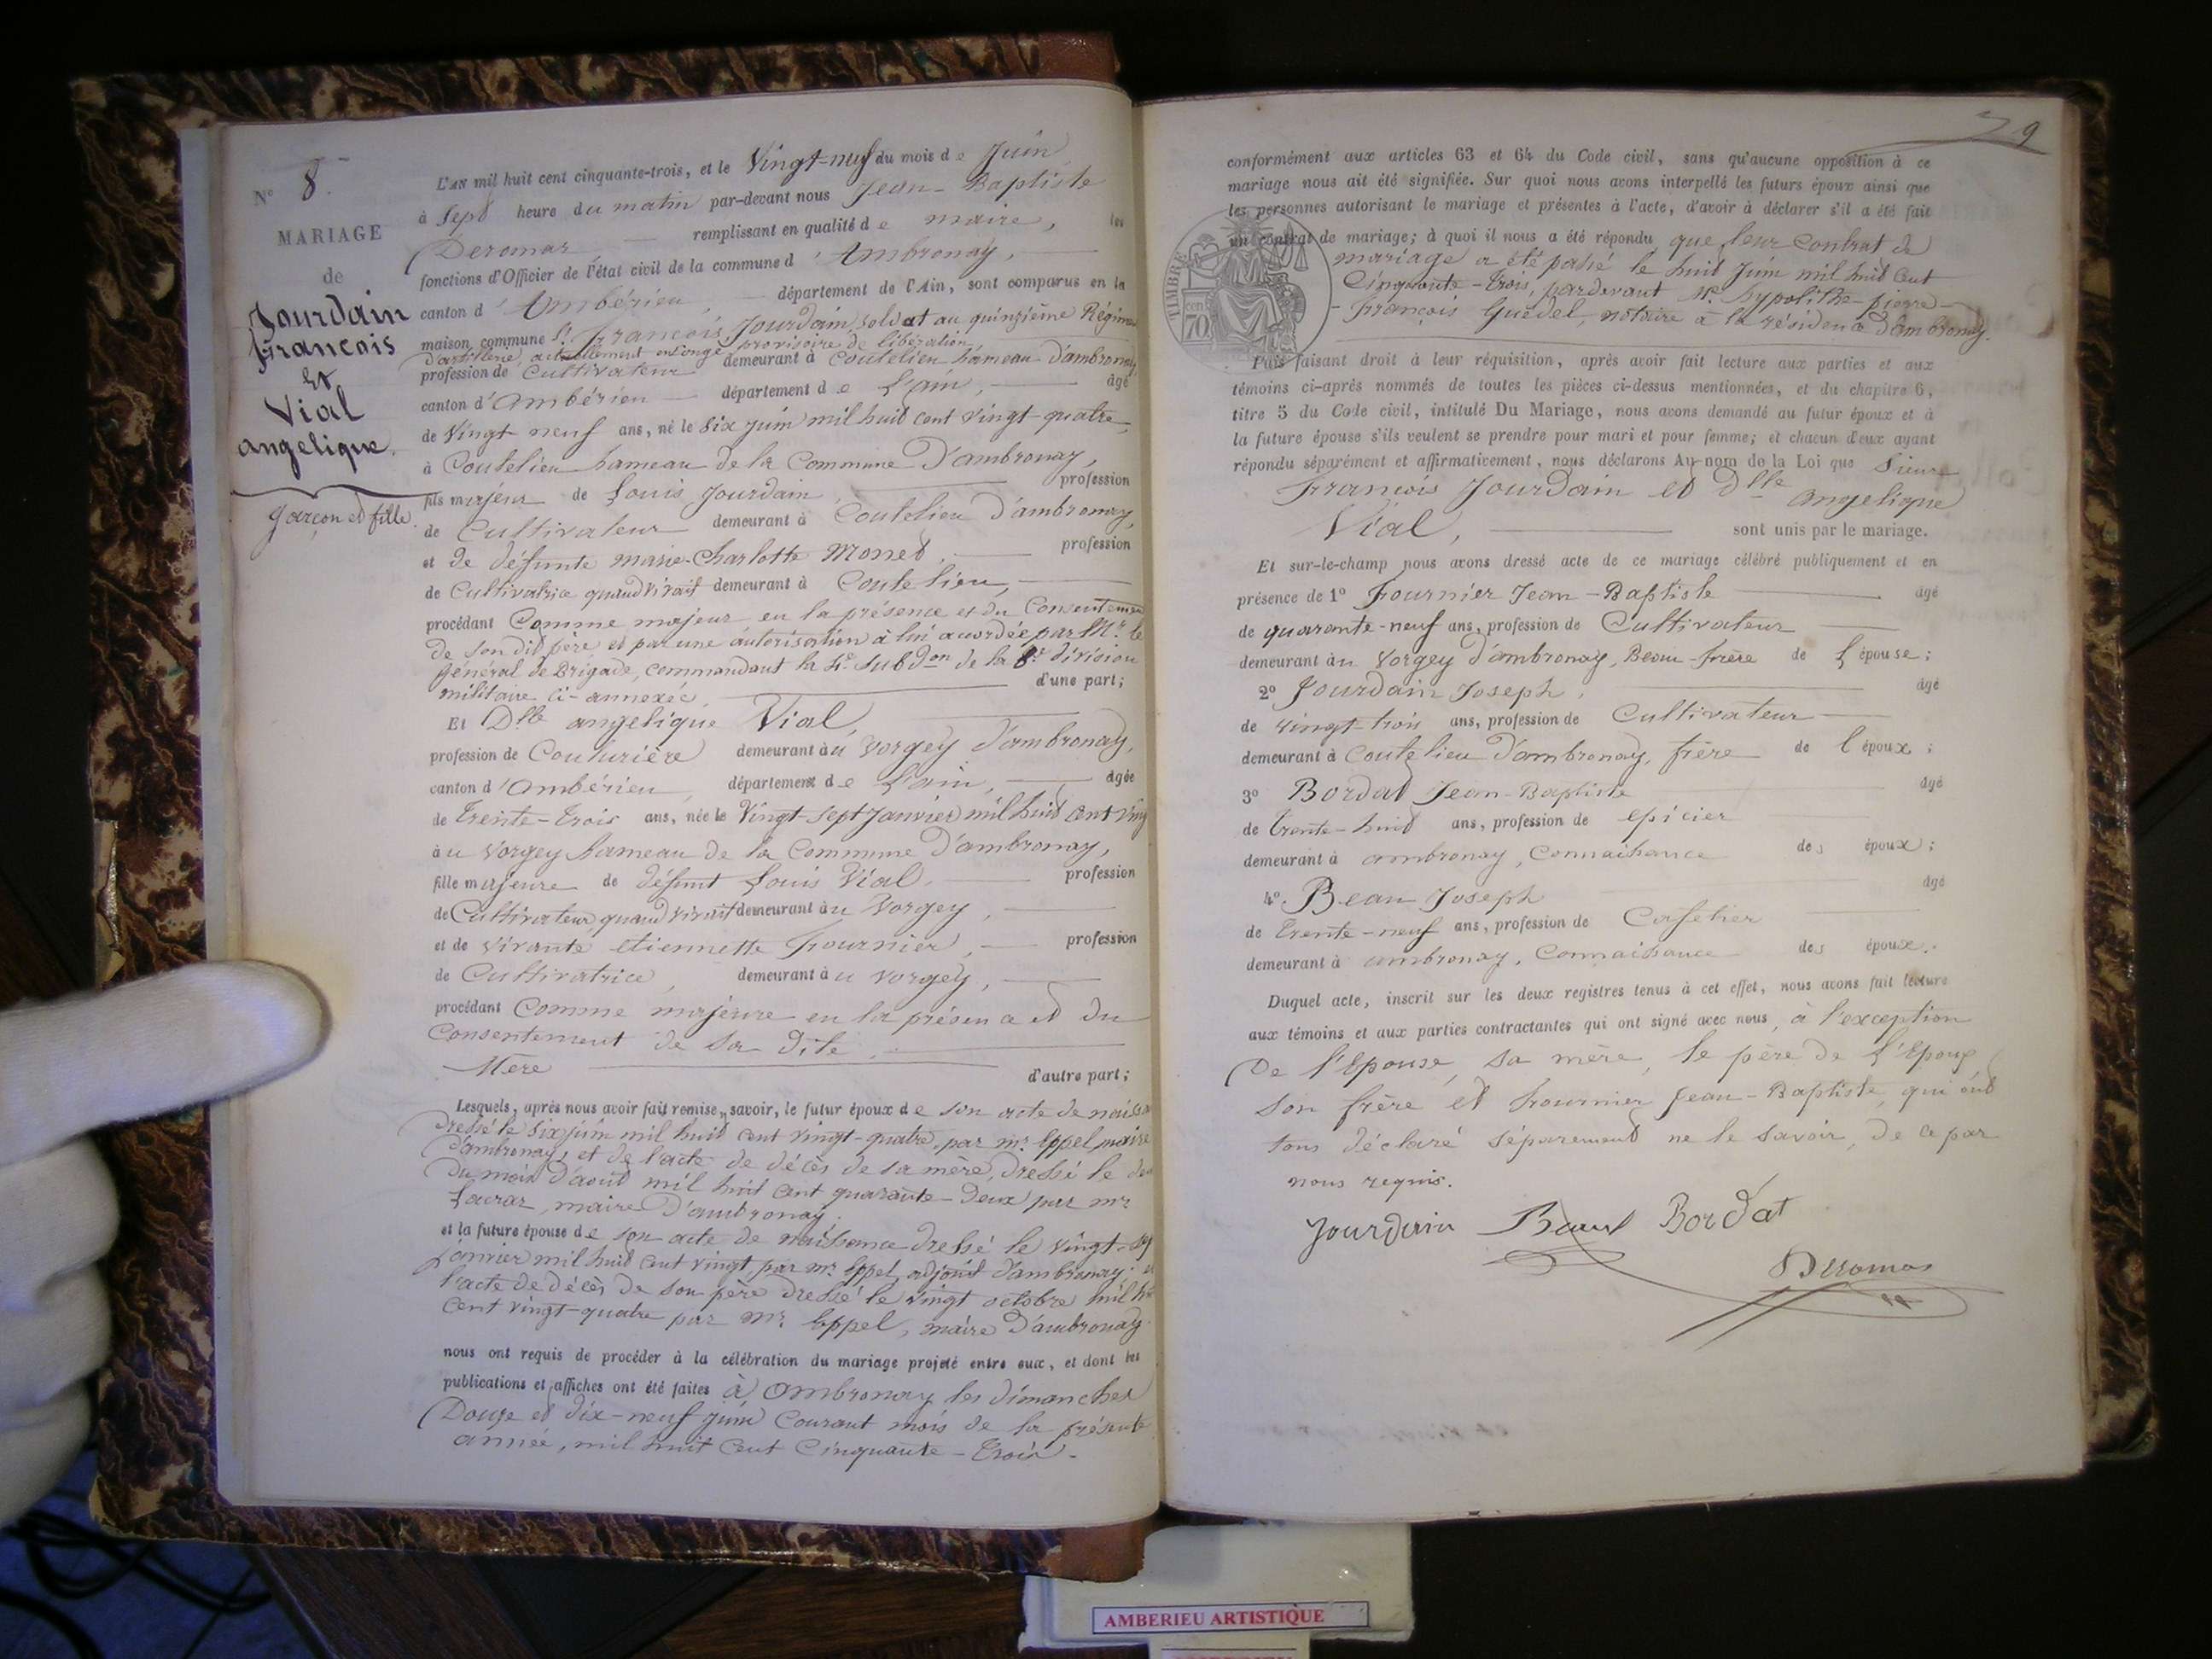 N° 8.
MARIAGE
de
Jourdain
francois
et
Vial
angelique.
garçon et fille.
L'AN mil huit cent cinquante-trois, et le Vingt-neuf du mois de Juin
à Sept heure du matin par-devant nous Jean-Baptiste
Deromas remplissant en qualité de maire, les
fonctions d'Officier de l'état civil de la commune d'Ambronay,
canton d'Ambérieu département de l'Ain, sont comparus en la
maison commune Sr. francois Jourdain, soldat au quinzième Régime
d'artillerie, actuellement en congé provisoire de libération
profession de Cultivateur demeurant à Coutelieu hameau d'ambronay,
canton d'Ambérieu département de l'ain, âgé
de Vingt-neuf ans, né le Six juin mil huit cent vingt-quatre,
à Coutelieu hameau de la Commune D'ambronay,
fils majeur de Louis Jourdain profession
de Cultivateur demeurant à Coutelieu D'ambronay,
et de défunte marie-Charlotte Monet, profession
de Cultivatrice quand vivait demeurant à Coutelieu,
procédant Comme majeur en la présence et du Consentemen
de Son dit père et par une autorisation à lui accordée par Mr. le
général de Brigade, commandant la 4e Subdon de la 8e division
militaire ci-annexée, d'une part;
Et Dlle angelique Vial,
profession de Couturière demeurant au Vorgey D'ambronay,
canton d'Ambérieu, département de L'ain, âgée
de Trente-Trois ans, née le Vingt-Sept Janvier mil huit Cent Ving
au Vorgey hameau de la Commune D'ambronay,
fille majeure de défunt Louis Vial, profession
de Cultivateur quand vivait demeurant au Vorgey,
et de vivante etiennette Fournier, profession
de Cultivatrice, demeurant au Vorgey,
procédant Comme majeure en la présence et du
Consentement de Sa dite
Mère d'autre part;
Lesquels, après nous avoir fait remise, savoir, le futur époux de son acte de naissa
dressé le Six juin mil huit Cent vingt-quatre, par mr. Eppel maire
d'ambronay, et de l'acte de décès de sa mère, dressé le
du mois D'août mil huit Cent quarante-deux par mr
maire D'ambronay.
et la future épouse de son acte de naissance dressé le Vingt-sep
Janvier mil huit Cent vingt, par mr. Eppel adjoint d'ambronay; et
l'acte de décès de son père dressé le vingt octobre mil h
Cent vingt-quatre par mr. Eppel, maire D'ambronay
nous ont requis de procéder à la célébration du mariage projeté entre eux, et dont les
publications et affiches ont été faites à Ambronay les dimanches
Douze et dix-neuf juin Courant mois de la présente
année, mil huit Cent Cinquante-Trois.
9
conformément aux articles 63 et 64 du Code civil, sans qu'aucune opposition à ce
mariage nous ait été signifiée. Sur quoi nous avons interpellé les futurs époux ainsi que
les personnes autorisant le mariage et présentes à l'acte, d'avoir à déclarer s'il a été fait
un contrat de mariage; à quoi il nous a été répondu que leur Contrat de
mariage a été passé le huit Juin mil huit Cent
Cinquante-Trois, pardevant Me. hypolithe-pierre-
françois Guedel, notaire à la résidence d'ambronay.
TIMBRE
70 cen
Puis faisant droit à leur réquisition, après avoir fait lecture aux parties et aux
témoins ci-après nommés de toutes les pièces ci-dessus mentionnées, et du chapitre 6,
titre 5 du Code civil, intitulé Du Mariage, nous avons demandé au futur époux et à
la future épouse s'ils veulent se prendre pour mari et pour femme; et chacun d'eux ayant
répondu séparément et affirmativement, nous déclarons Au nom de la Loi que Sieur
François Jourdain et Dlle angelique
Vial, sont unis par le mariage.
Et sur-le-champ nous avons dressé acte de ce mariage célébré publiquement et en
présence de 1° Fournier Jean-Baptiste âgé
de quarante-neuf ans, profession de Cultivateur
demeurant au Vorgey d'ambronay, Beau-frère de l'épouse;
2° Jourdain Joseph, âgé
de vingt-trois ans, profession de Cultivateur
demeurant à Coutelieu D'ambronay, frère de l'époux;
3° Bordat Jean-Baptiste âgé
de trente-huit ans, profession de epicier
demeurant à ambronay, Connaissance des époux;
4° Beau Joseph âgé
de trente-neuf ans, profession de Cafetier
demeurant à ambronay, Connaissance des époux.
Duquel acte, inscrit sur les deux registres tenus à cet effet, nous avons fait lecture
aux témoins et aux parties contractantes qui ont signé avec nous, à l'exception
De l'Epouse, sa mère, le père de l'Epoux
son frère et fournier Jean-Baptiste, qui ont
tous déclaré séparément ne le savoir, de ce par
nous requis.
Jourdain Beau Bordat
Deromas
AMBERIEU ARTISTIQUE